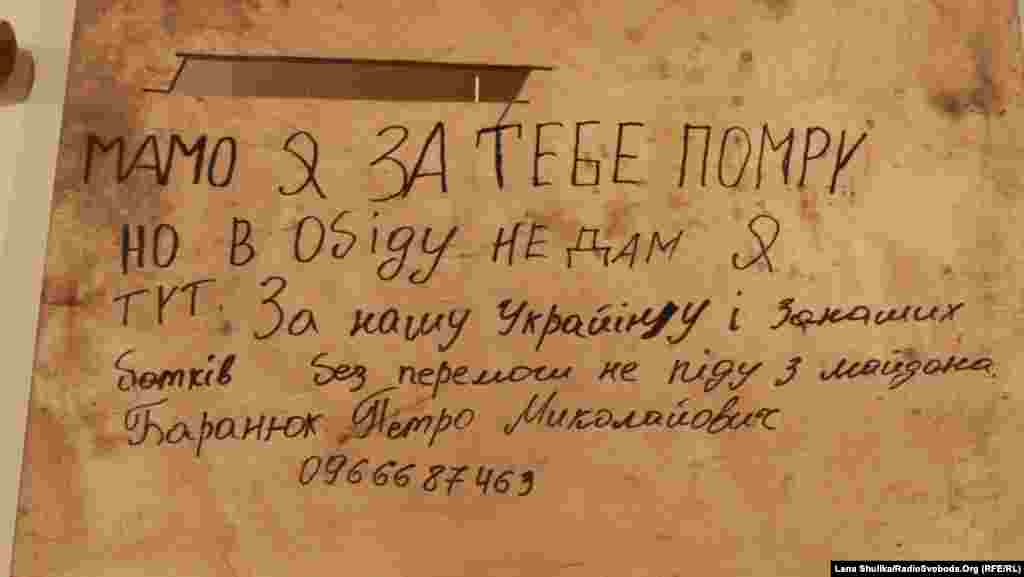 МАМО Я ЗА ТЕБЕ ПОМРУ
НО В Обіду НЕ ДАМ Я
ТУТ. За нашу Украйінy і Занаших
батків без перемоги не піду з майдана.
Баранюк Петро Миколайович
0966687463
Lana Shulika/RadioSvoboda.Org (RFE/RL)